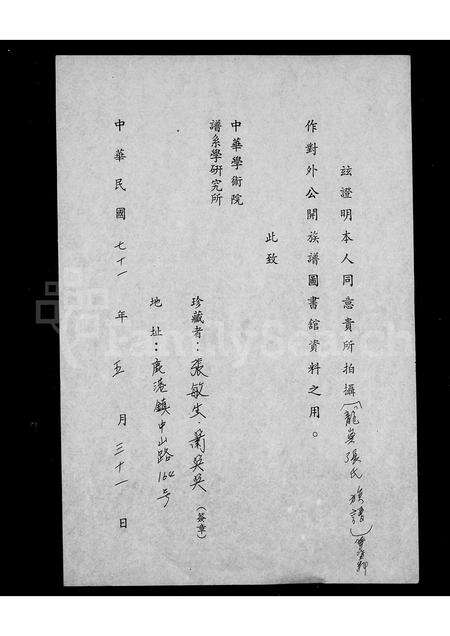 茲證明本人同意貴所拍攝(龍井張氏族譜)
作對外公開族譜圖書館資料之用。
此致
中華學術院
譜系學研究所
珍藏者:張敏生.蕭吳吳(簽章)
地址:鹿港鎮中山路164号
中華民國七十一年五月三十一日